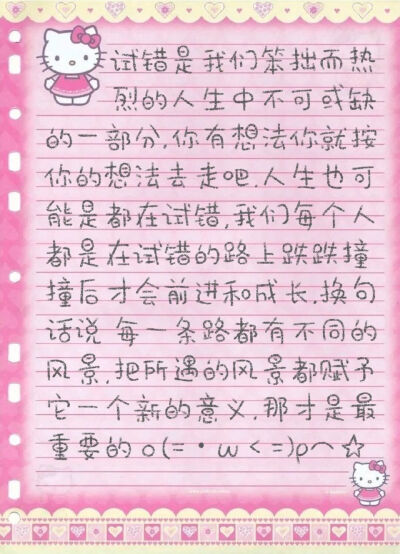 试错是我们笨拙而热
烈的人生中不可或缺
的一部分,你有想法你就按
你的想法去走吧.人生也可
能是都在试错,我们每个人
都是在试错的路上跌跌撞
撞后才会前进和成长.换句
话说每一条路都有不同的
风景,把所遇的风景都赋予
它一个新的意义,那才是最
重要的o(=·ω<=)ρ⌒☆